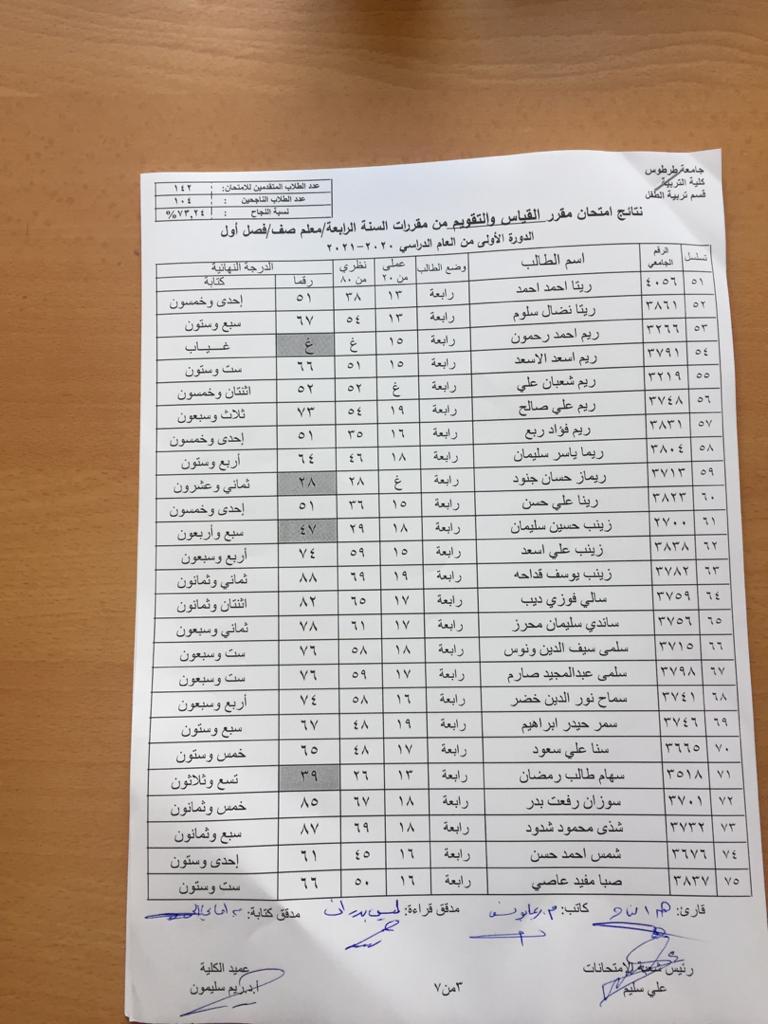 جامعة طرطوس
كلية التربية
قسم تربية الطفل
عدد الطلاب المتقدمين للامتحان: ١٤٢
عدد الطلاب الناجحين : ١٠٤
نسبة النجاح : ٧٣,٢٤%
نتائج امتحان مقرر القياس والتقويم من مقررات السنة الرابعة/معلم صف/فصل أول
الدورة الأولى من العام الدراسي ٢٠٢٠-٢٠٢١
تسلسل الرقم الجامعي اسم الطالب وضع الطالب عملي من ٢٠ نظري من ٨٠ الدرجة النهائية رقما كتابة
٥١ ٤٠٥٦ ريتا احمد احمد رابعة ١٣ ٣٨ ٥١ إحدى وخمسون
٥٢ ٣٨٦١ ريتا نضال سلوم رابعة ١٣ ٥٤ ٦٧ سبع وستون
٥٣ ٣٢٦٦ ريم احمد رحمون رابعة ١٥ غ غ غـــيـاب
٥٤ ٣٧٩١ ريم اسعد الاسعد رابعة ١٥ ٥١ ٦٦ ست وستون
٥٥ ٣٢١٩ ريم شعبان علي رابعة غ ٥٢ ٥٢ اثنتان وخمسون
٥٦ ٣٧٤٨ ريم علي صالح رابعة ١٩ ٥٤ ٧٣ ثلاث وسبعون
٥٧ ٣٨٣١ ريم فؤاد ربع رابعة ١٦ ٣٥ ٥١ إحدى وخمسون
٥٨ ٣٨٠٤ ريما ياسر سليمان رابعة ١٨ ٤٦ ٦٤ أربع وستون
٥٩ ٣٧١٣ ريماز حسان جنود رابعة غ ٢٨ ٢٨ ثماني وعشرون
٦٠ ٣٨٢٣ رينا علي حسن رابعة ١٥ ٣٦ ٥١ إحدى وخمسون
٦١ ٢٧٠٠ زينب حسين سليمان رابعة ١٨ ٢٩ ٤٧ سبع وأربعون
٦٢ ٣٨٣٨ زينب علي اسعد رابعة ١٥ ٥٩ ٧٤ أربع وسبعون
٦٣ ٣٧٨٢ زينب يوسف قداحه رابعة ١٩ ٦٩ ٨٨ ثماني وثمانون
٦٤ ٣٧٥٩ سالي فوزي ديب رابعة ١٧ ٦٥ ٨٢ اثنتان وثمانون
٦٥ ٣٧٥٦ ساندي سليمان محرز رابعة ١٧ ٦١ ٧٨ ثماني وسبعون
٦٦ ٣٧١٥ سلمى سيف الدين ونوس رابعة ١٨ ٥٨ ٧٦ ست وسبعون
٦٧ ٣٧٩٨ سلمى عبدالمجيد صارم رابعة ١٧ ٥٩ ٧٦ ست وسبعون
٦٨ ٣٧٤١ سماح نور الدين خضر رابعة ١٦ ٥٨ ٧٤ أربع وسبعون
٦٩ ٣٧٤٦ سمر حيدر ابراهيم رابعة ١٩ ٤٨ ٦٧ سبع وستون
٧٠ ٣٦٦٥ سنا علي سعود رابعة ١٧ ٤٨ ٦٥ خمس وستون
٧١ ٣٥١٨ سهام طالب رمضان رابعة ١٣ ٢٦ ٣٩ تسع وثلاثون
٧٢ ٣٧٠١ سوزان رفعت بدر رابعة ١٨ ٦٧ ٨٥ خمس وثمانون
٧٣ ٣٧٣٢ شذى محمود شدود رابعة ١٨ ٦٩ ٨٧ سبع وثمانون
٧٤ ٣٦٧٦ شمس احمد حسن رابعة ١٦ ٤٥ ٦١ إحدى وستون
٧٥ ٣٨٣٧ صبا مفيد عاصي رابعة ١٦ ٥٠ ٦٦ ست وستون
قارئ: كاتب: مدقق قراءة: مدقق كتابة:
رئيس شعبة الامتحانات عميد الكلية
علي سليم ٣من٧ ا.د.ريم سليمون